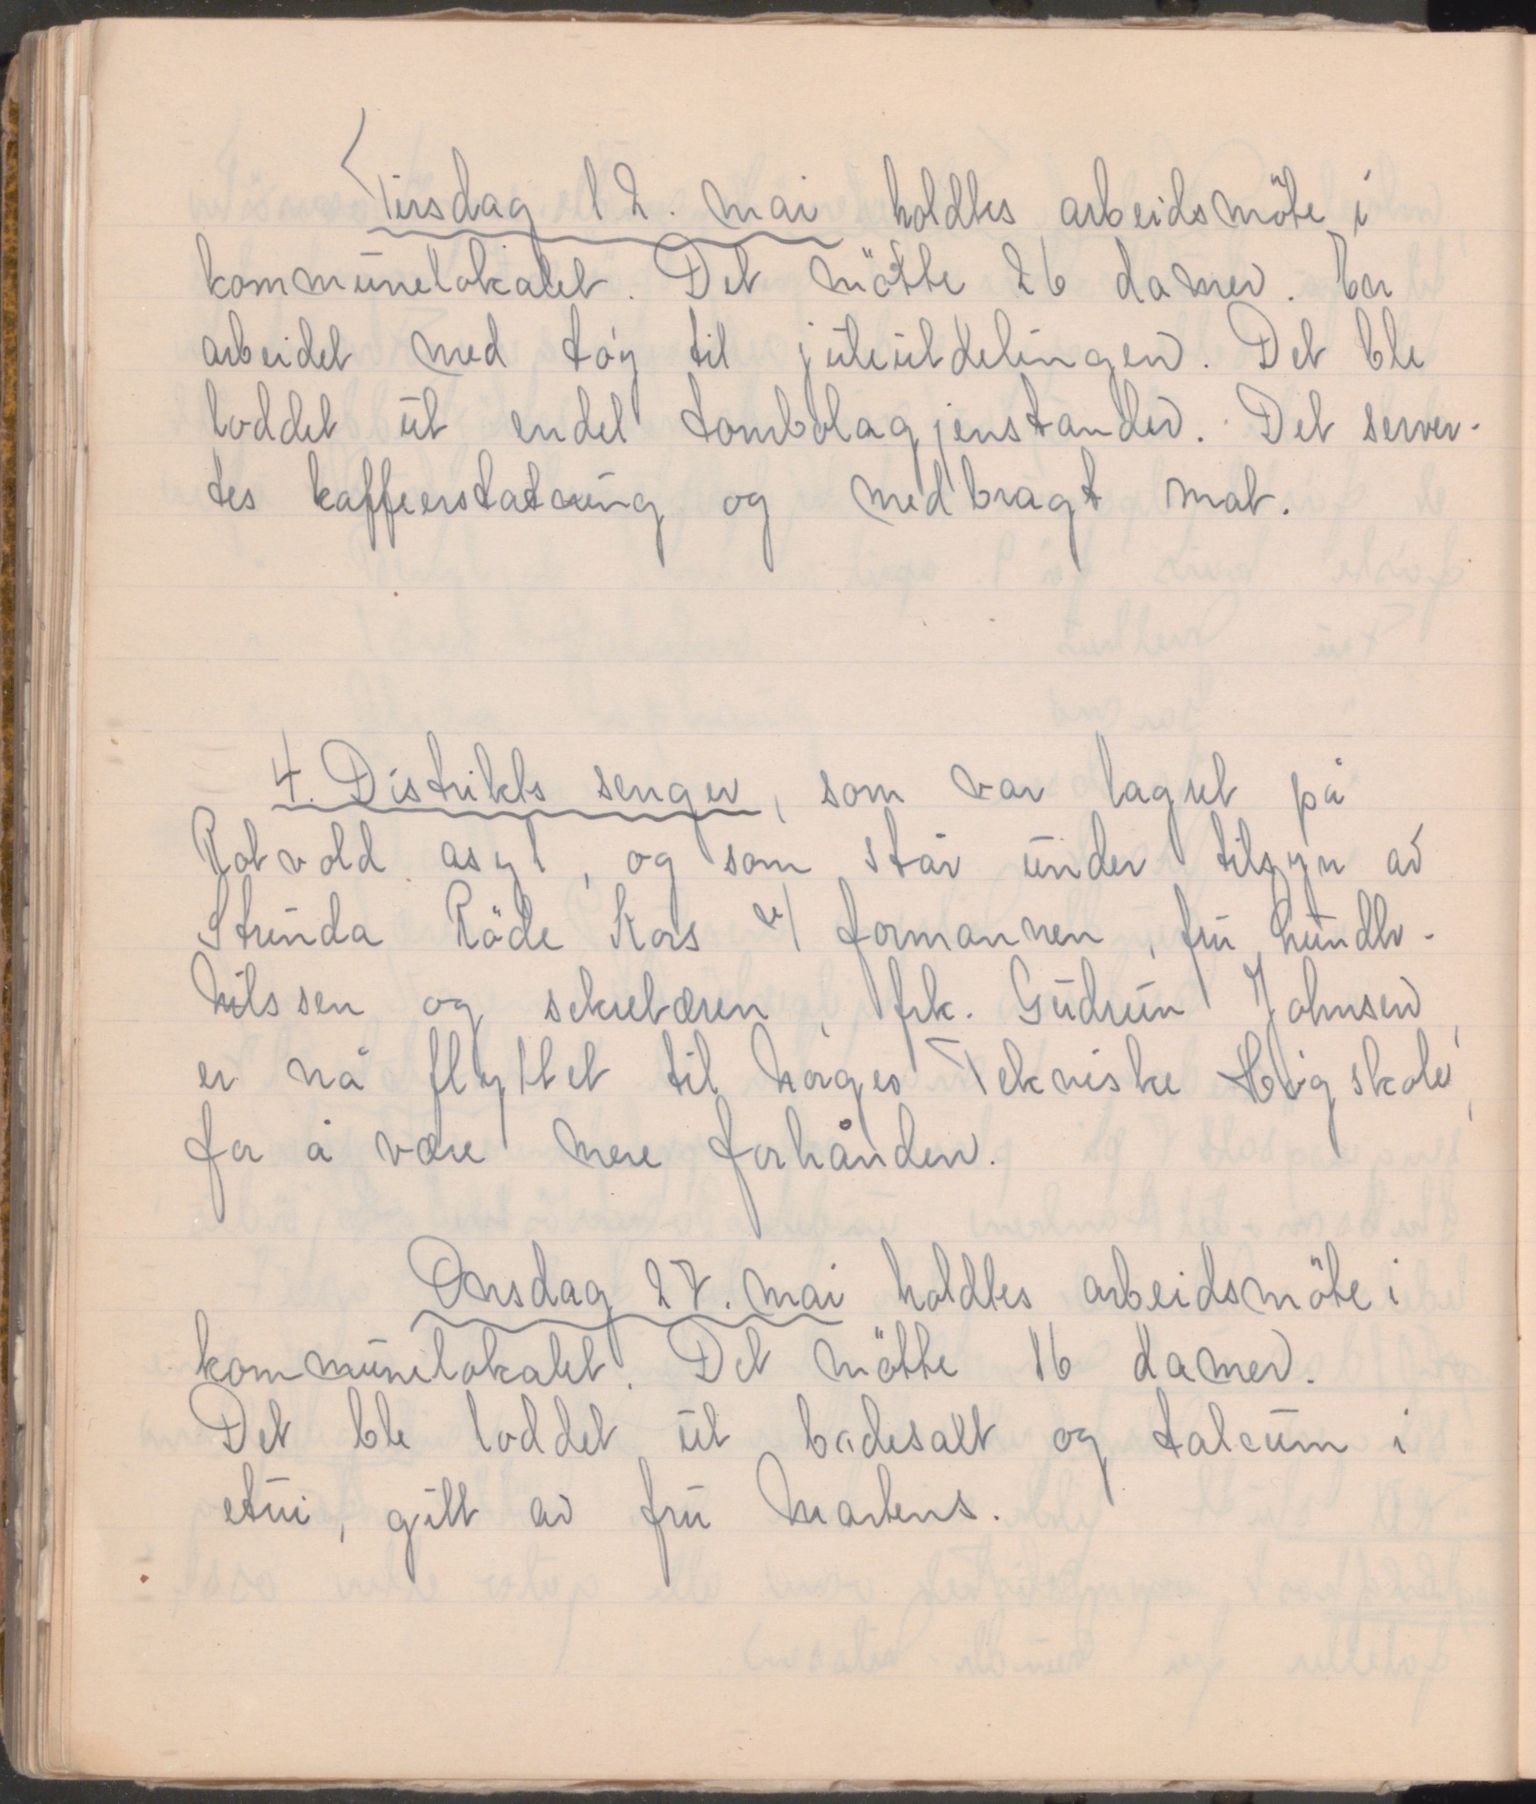 Tirsdag 12. mai holdtes arbeidsmöte i
kommunelokalet. Det mötte 26 damer. En
arbeidet med töy til juleutdelingen. Det ble
loddet ut endel tombolagjenstander. Det server-
tes kaffeerstatning og medbragt mat.
4. Distrikts senger, som var lagret på
Rotvold asyl, og som står under tilsyn av
Strinda Röde Kors v/ formannen, fru Lundh-
Nilssen og sekretæren, frk. Gudrun Johnsen,
er nå flyttet til Norges Tekniske Högskole,
for å være mere forhånden.
Onsdag 27. mai holdtes arbeidsmöte i
kommunelokalet. Det mötte 16 damer.
Det ble loddet ut badesalt og talcum i
etui, gitt av fru Martens.